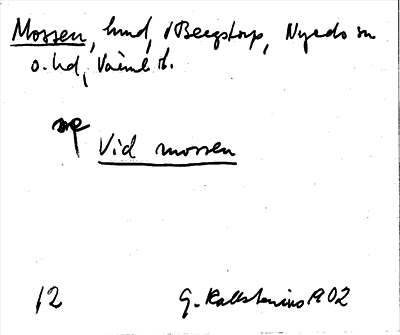 Mossen, lund, i Bergstorp, Nyeds sn
o. hd, Värml. l.
se
Vid mossen
12 G. Kallstenius 1902